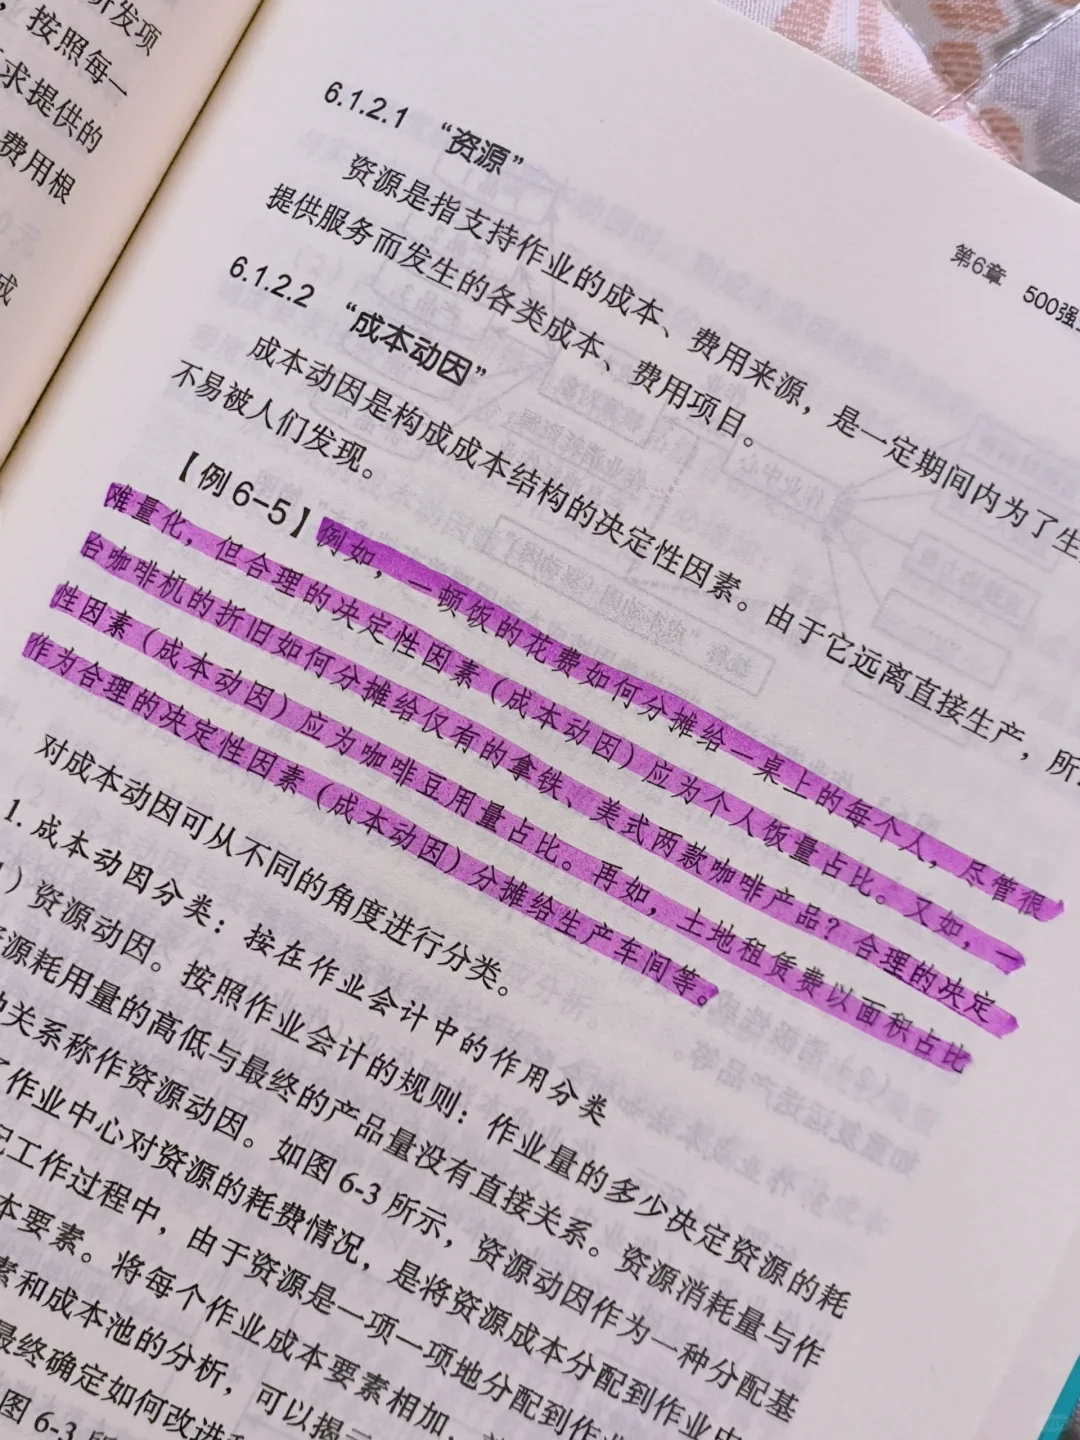 开发项
按照每一
求提供的
费用根
成
第6章 500强
6.1.2.1 “资源”
资源是指支持作业的成本、费用来源，是一定期间内为了生
提供服务而发生的各类成本、费用项目。
6.1.2.2 “成本动因”
成本动因是构成成本结构的决定性因素。由于它远离直接生产，所
不易被人们发现。
【例6-5】例如，一顿饭的花费如何分摊给一桌上的每个人，尽管很
难量化，但合理的决定性因素（成本动因）应为个人饭量占比。又如，一
台咖啡机的折旧如何分摊给仅有的拿铁、美式两款咖啡产品？合理的决定
性因素（成本动因）应为咖啡豆用量占比。再如，土地租赁费以面积占比
作为合理的决定性因素（成本动因）分摊给生产车间等。
对成本动因可从不同的角度进行分类。
1. 成本动因分类：按在作业会计中的作用分类
）资源动因。按照作业会计的规则：作业量的多少决定资源的耗
源耗用量的高低与最终的产品量没有直接关系。资源消耗量与作
关系称作资源动因。如图 6-3 所示，资源动因作为一种分配基
作业中心对资源的耗费情况，是将资源成本分配到作业中
工作过程中，由于资源是一项一项地分配到作
本要素。将每个作业成本要素相加，
素和成本池的分析，可以揭
最终确定如何改进
图 6-3 所